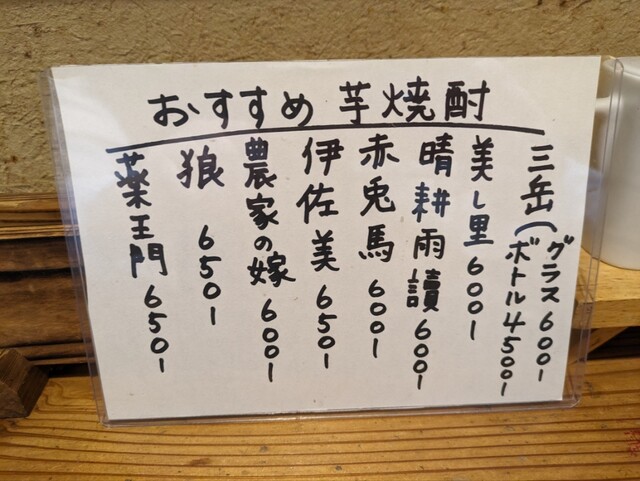 おすすめ 芋焼酎
三岳(グラス 600ー
ボトル 4500ー
美し里 600ー
晴耕雨讀 600ー
赤兎馬 600ー
伊佐美 650ー
農家の嫁 600ー
狼 650ー
薬王門 650ー